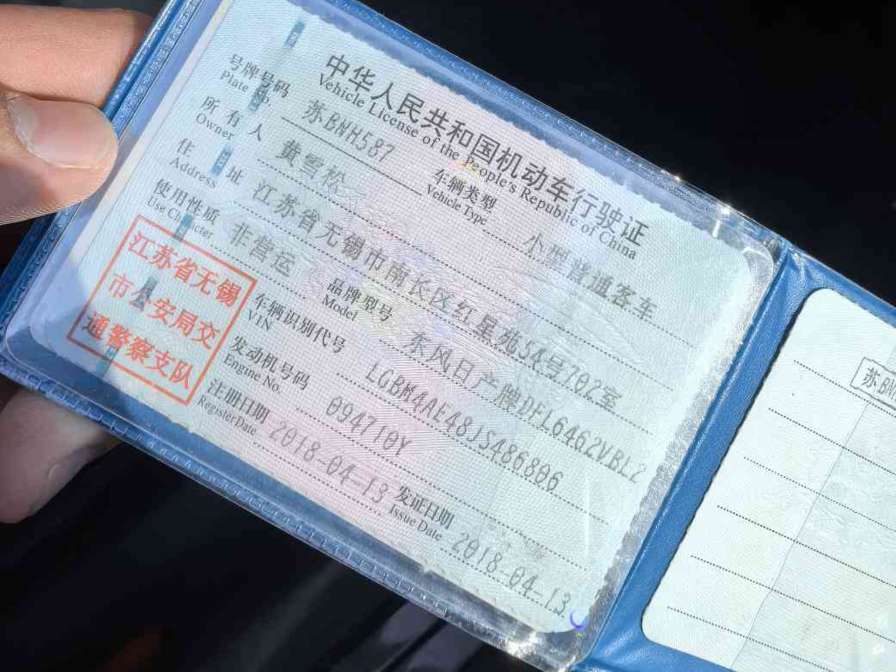 中华人民共和国机动车行驶证
Vehicle License of the People's Republic of China
号牌号码 苏BNH587 车辆类型 小型普通客车
Plate No. Vehicle Type
所有人 黄雪松
Owner
住址 江苏省无锡市南长区红星苑54号702室
Address
使用性质 非营运 品牌型号 东风日产牌DFL6462VBL2
Use Character Model
江苏省无锡
市公安局交
通警察支队
车辆识别代号 LGBM4AE48JS486806
VIN
发动机号码 094710Y
Engine No.
注册日期 2018-04-13 发证日期 2018-04-13
Register Date Issue Date